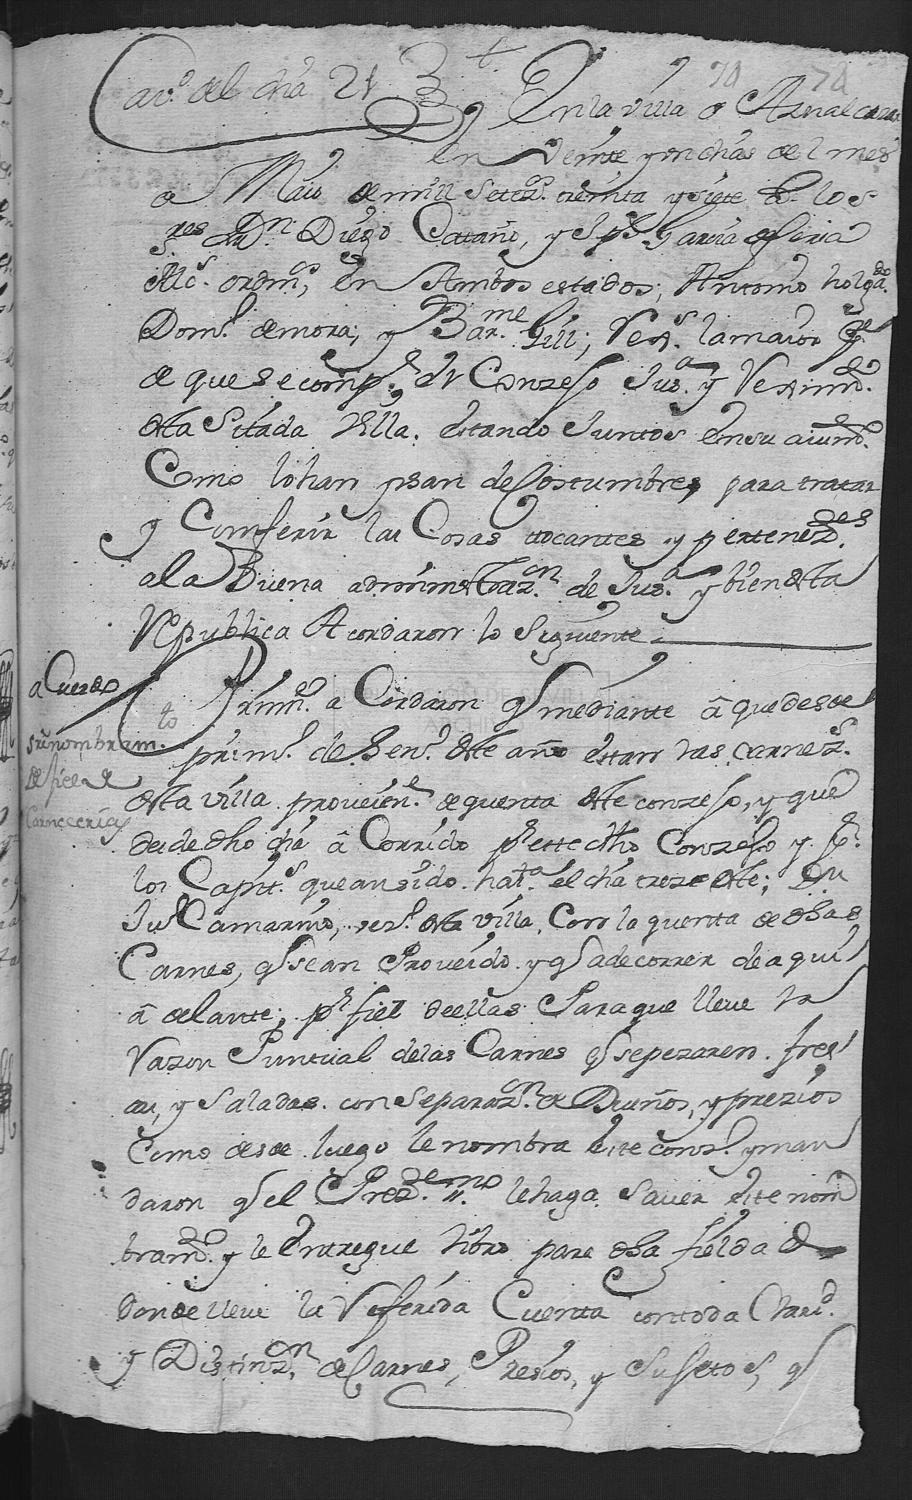 Cav.º del dia 21
70 70
En la villa de Aznalcazar
en Veinte y un dias del mes
de Maio de mill Setez.s treinta y siete a.s los
s.res D.n Diego Cataño, y Sp.l Garcia de feria
Allc.s ordin.s en Ambos estados; Antonio holg.do
Dom.o de mora; y Bar.me Gill; Rex.s la maior p.te
de que se comp.e el Conzejo Jus.a y Reximi.to
desta Sitada Villa. estando Juntos en su aiunt.o
Como lo han usan de Costumbre, para tratar
y Comferir las Cosas tocantes y pertenez.tes
a la Buena administraz.on de Jus.a y bien desta
Republica Acordaron lo Siguiente
aCuerdo
Prim.to aCordaron q mediante â que desde
s.re nombram.to
prim.o de Hen.o deste año estan las carnez.s
de fiel de
desta villa proveien.e de quenta deste conzejo, y que
Carnecerias
desde dho dia â Corrido p.r este dho Conzejo y p.r
los Capit.s que an sido hat.a el dia treze deste; Dn
Ju.o Camarino, vez.o desta villa, Con la quenta de dhas
Carnes, q sean Proveido y q ade correr de aqui
â delante; p.r fiel de ellas Para que lleve la
Razon Puntual de las Carnes q se pezaren. fres
cas, y Saladas. con Separaz.on de Dueños, y prezios
Como desde luego le nombra este conz.o y man
daron q el Pres.te ess.no le haga Saver este nom
bram.to y le Entregue libro para dha fieldad
donde lleve la Referida Cuenta con toda Clarid.d
y Distinz.on de Carnes, Presios, y Sujetos, q